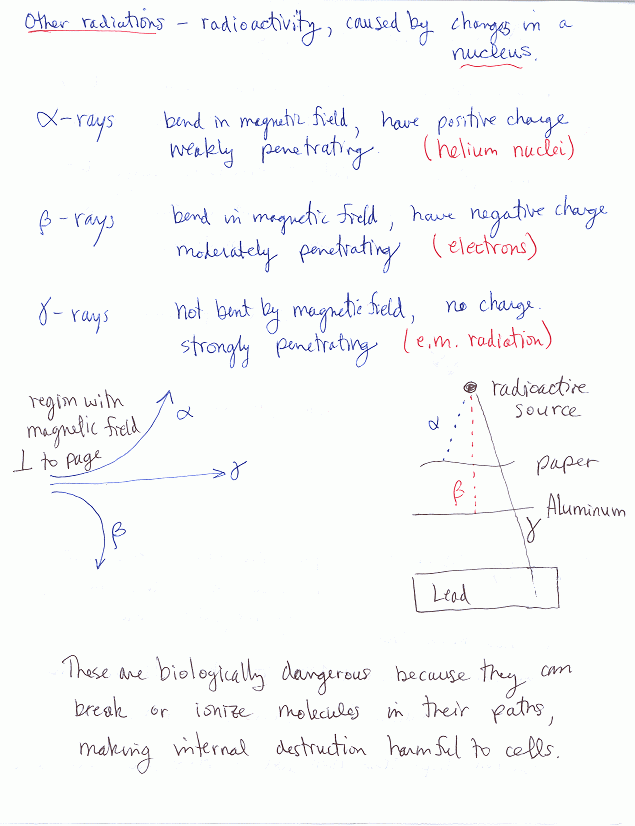 Other radiations – radioactivity, caused by changes in a
nucleus.
α-rays bend in magnetic field, have positive charge
weakly penetrating. (helium nuclei)
β-rays bend in magnetic field, have negative charge
moderately penetrating (electrons)
γ-rays not bent by magnetic field, no charge.
strongly penetrating (e.m. radiation)
region with
magnetic field
⊥ to page
α
γ
β
radioactive
source
α
paper
β
Aluminum
γ
Lead
These are biologically dangerous because they can
break or ionize molecules in their paths,
making internal destruction harmful to cells.